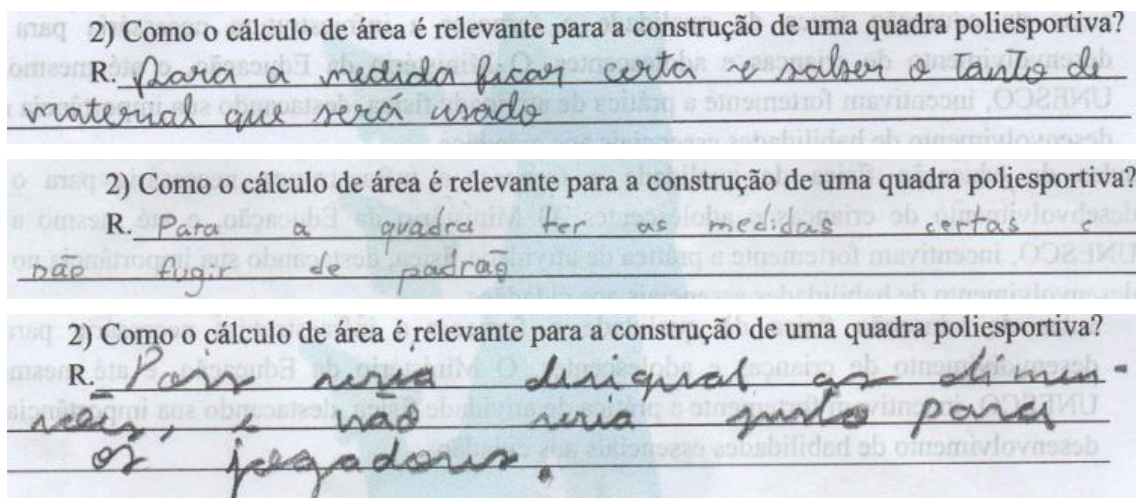 2) Como o cálculo de área é relevante para a construção de uma quadra poliesportiva?
R. para a medida ficar certa e saber o tanto de
material que será usado
2) Como o cálculo de área é relevante para a construção de uma quadra poliesportiva?
R. Para a quadra ter as medidas certas e
não fugir de padrão
2) Como o cálculo de área é relevante para a construção de uma quadra poliesportiva?
R. Pois seria disigual as dimen-
sões, e não seria justo para
os jogadores.